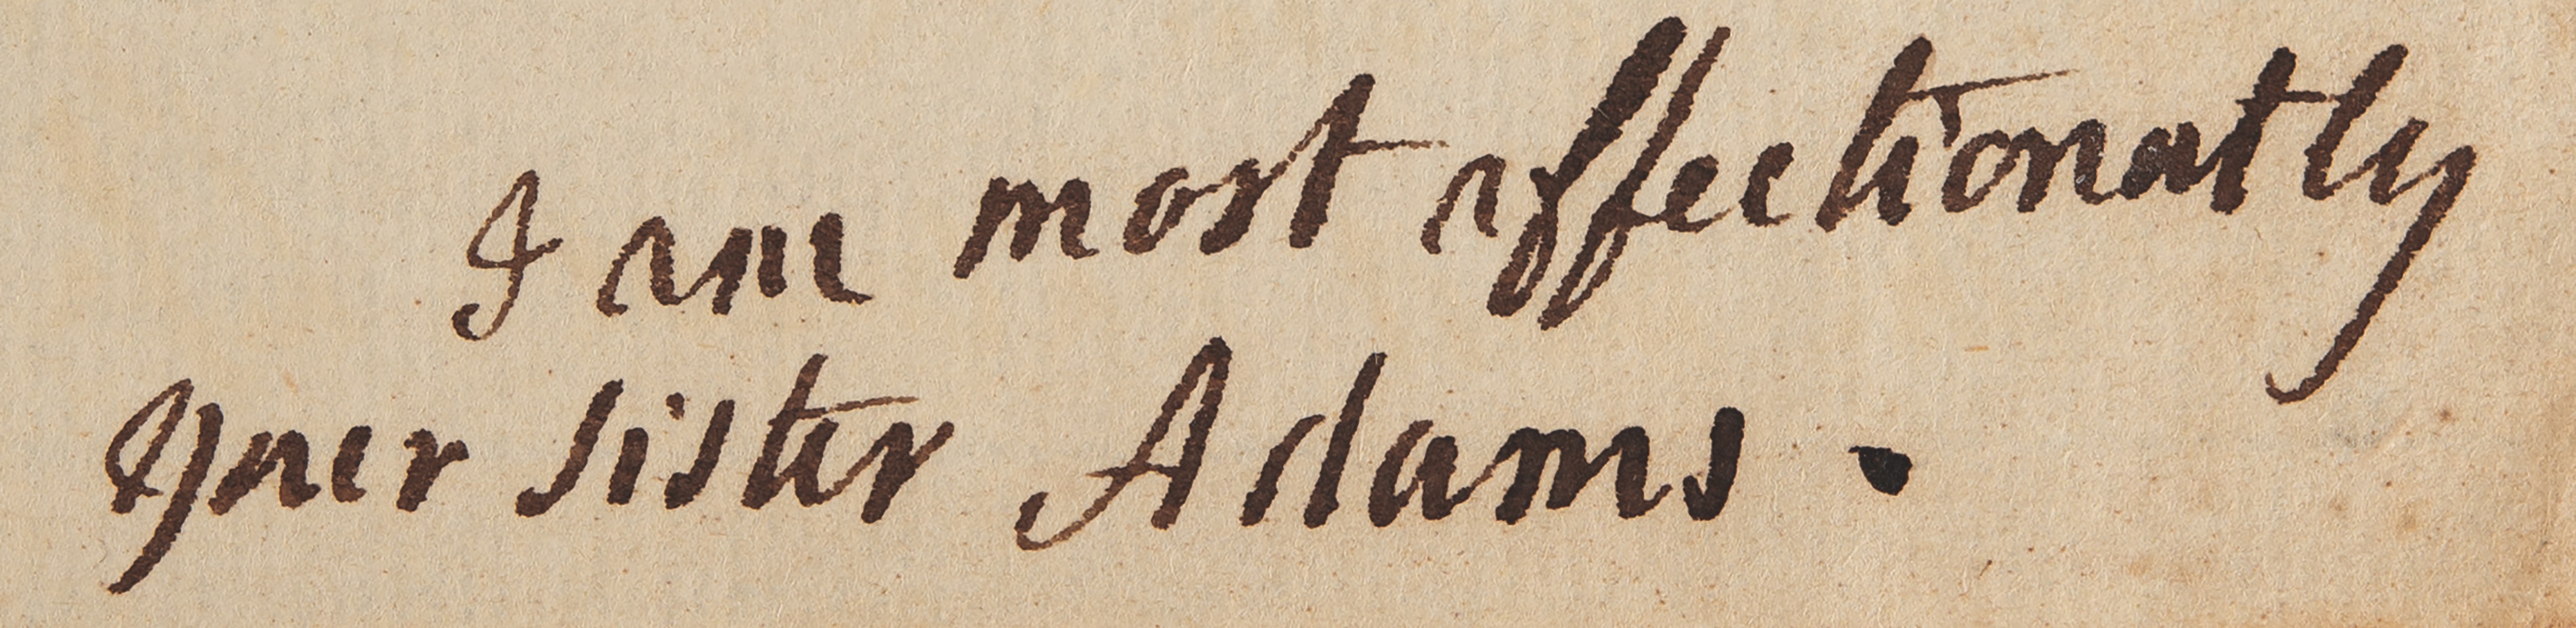 I am most affectionatly
your sister Adams .